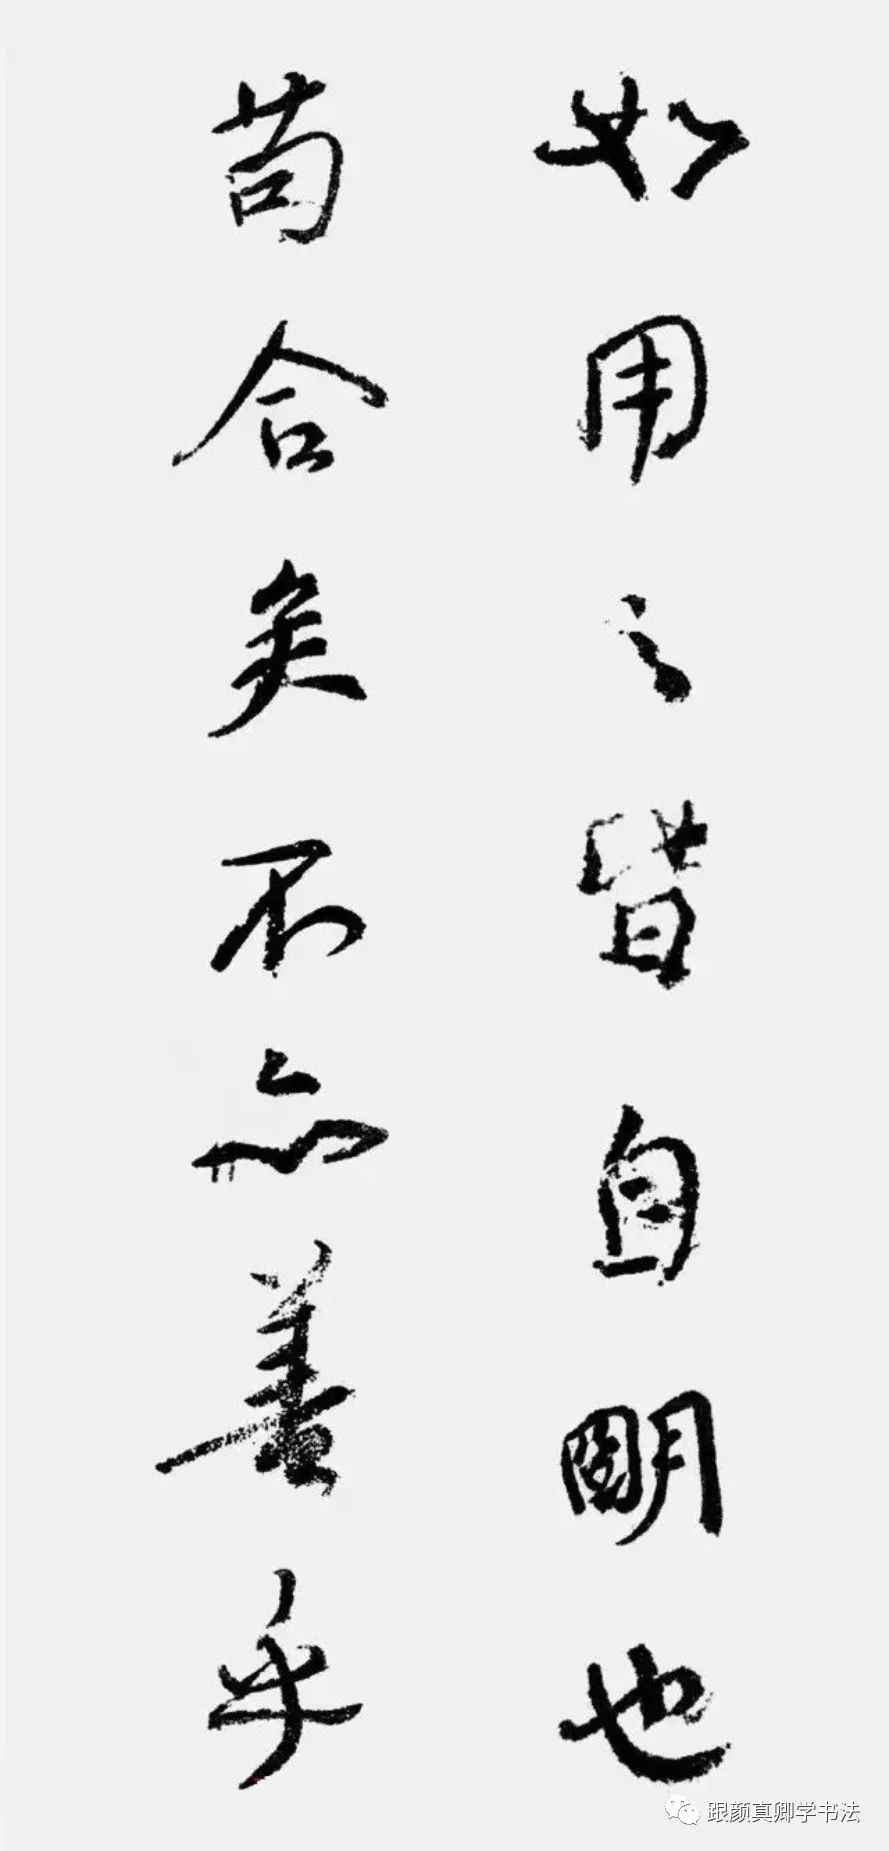 如用之皆自朙也
苟合矣不亦善乎
跟颜真卿学书法